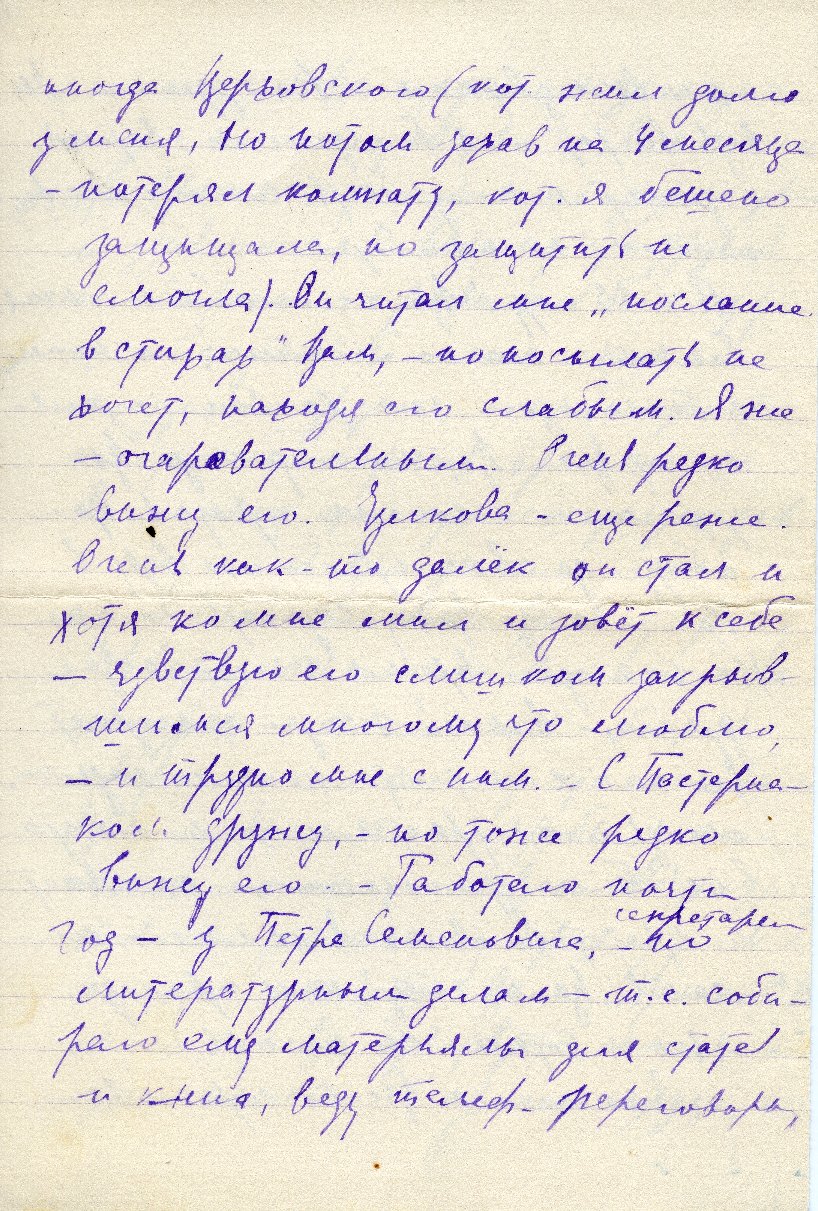 иногда Верховского (кот. жил долго
у меня, но потом уехав на 4 месяца
– потерял комнату, кот. я бешено
защищала, но защитить не
смогла). Он читал мне „послание
в стихах" Вам, – но посылать не
хочет, находя его слабым. Я же
– очаровательным. Очень редко
вижу его. – еще реже.
Очень как-то далёк он стал и
хотя ко мне мил и зовёт к себе
– чувствую его слишком закрыв-
шимся многому, что люблю,
– и трудно мне с ним. – С Пастерна-
ком дружу, – но тоже редко
вижу его. – Работаю почти
год – у Петра Семеновича, – секретарем по
литературным делам – т.е. соби-
раю ему матерьялы для статей
и книг, веду телеф. переговоры,